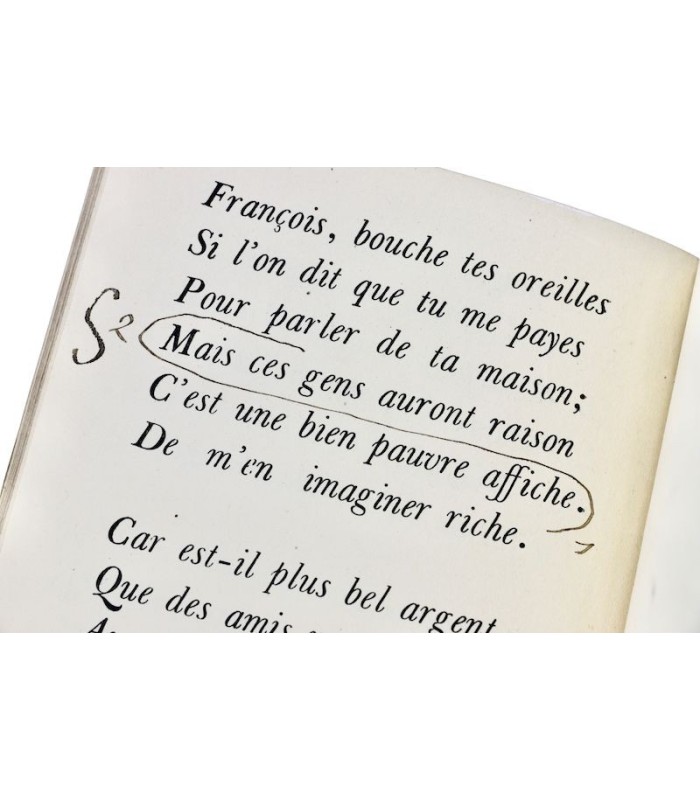 François, bouche tes oreilles
Si l'on dit que tu me payes
Pour parler de ta maison;
Mais ces gens auront raison
C'est une bien pauvre affiche.
De m'en imaginer riche.
Car est-il plus bel argent
Que des amis